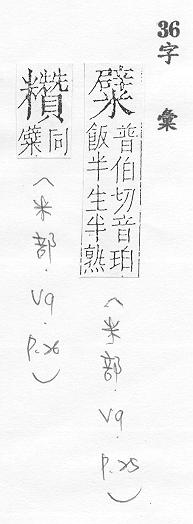 36字 彙
糪
普伯切音珀
飯半生半熟
(米部.V9.P.25)
同
(米部.V9.P.26)